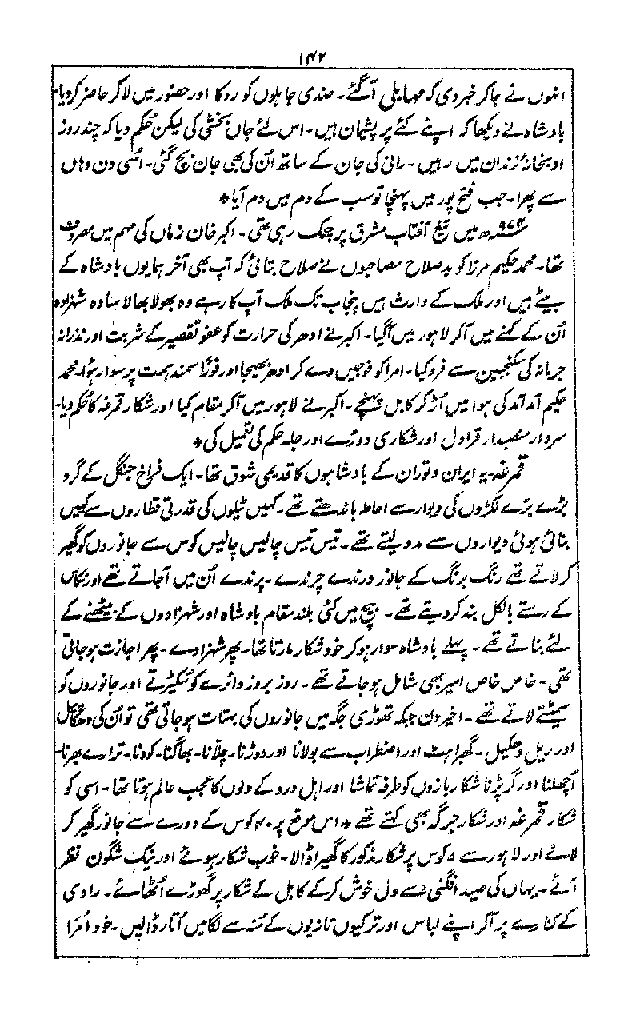 ۱۴۲
انہوں نے جاکر خبر دی کہ مہابلی آگئے۔ ضدی جاہلوں کو روکا اور حضور میں لاکر حاضر کردیا۔
بادشاہ نے دیکھا کہ اپنے کئے پر پشیمان ہیں۔ اس لئے جاں بخشی کی لیکن حکم دیا کہ چند روز
ادبخانۂ زندان میں رہیں۔ رانی کی جان کے ساتھ اُن کی بھی جان بچ گئی۔ اُسی دن وہاں
سے پھرا۔ جب فتح پور میں پہنچا تو سب کے دم میں دم آیا *
۹۷۴ھ میں تیغ آفتاب مشرق پر چمک رہی تھی۔ اکبر خان زماں کی مہم میں مصروف
تھا۔ محمد حکیم مرزا کو بدصلاح مصاحبوں نے صلاح بتائی کہ آپ بھی آخر ہمایوں بادشاہ کے
بیٹے ہیں اور ملک کے وارث ہیں پنجاب تک ملک آپ کا رہے وہ بھولا بھالا سادہ شہزادہ
اُن کے کہنے میں آکر لاہور میں آگیا۔ اکبر نے ادھر کی حرارت کو عفو تقصیر کے شربت اور نذرانہ
جرمانہ کی سکنجبین سے فرو کیا۔ امرا کو فوجیں دے کر ادھر بھیجا اور فوراً سمند ہمت پر سوار ہؤا۔ محمد
حکیم آمد آمد کی ہوا میں اُڑ کر کابل پہنچے۔ اکبر نے لاہور میں آکر مقام کیا اور شکار قمرغہ کا حکم دیا۔
سردار منصبدار قراول اور شکاری دوڑے اور جلد حکم کی تعمیل کی *
قمرغہ یہ ایران و توران کے بادشاہوں کا قدیمی شوق تھا۔ ایک فراخ جنگل کے گرد
بڑے بڑے لکڑوں کی دیوار سے احاطہ باندھتے تھے۔ کہیں ٹیلوں کی قدرتی قطاروں سے کہیں
بنائی ہوئی دیواروں سے مدد لیتے تھے۔ تیس تیس چالیس چالیس کوس سے جانوروں کو گھیر
کر لاتے تھے رنگ برنگ کے جانور درندے چرندے۔ پرندے اُن میں آجاتے تھے اور نکاس
کے رستے بالکل بند کر دیتے تھے۔ بیچ میں کئی بلند مقام بادشاہ اور شہزادوں کے بیٹھنے کے
لئے بناتے تھے۔ پہلے بادشاہ سوار ہوکر خود شکار مارتا تھا۔ پھر شہزادے۔ پھر اجازت ہوجاتی
تھی۔ خاص خاص امیر بھی شامل ہوجاتے تھے۔ روز بروز دائرے کو سکیڑتے اور جانوروں کو
سمیٹتے لاتے تھے۔ اخیر دن جبکہ تھوڑی جگہ میں جانوروں کی بہتات ہوجاتی تھی تو اُن کی دھکاپیل
اور ریل دھکیل۔ گھبراہٹ اور اضطراب سے بولانا اور دوڑنا۔ چلّانا۔ بھاگنا۔ کودنا۔ ترارے بھرنا۔
اُچھلنا اور گر پڑنا شکاربازوں کو طرفہ تماشا اور اہل درد کے دلوں کا عجب عالم ہوتا تھا۔ اسی کو
شکار قمرغہ اور شکار جرگہ بھی کہتے تھے * اس موقع پر ۴۰ کوس کے دورے سے جانور گھیر کر
لائے اور لاہور سے ۵ کوس پر شکار مذکور کا گھیرا ڈالا۔ خوب شکار ہوئے اور نیک شگون نظر
آئے۔ یہاں کی صید افگنی سے دل خوش کرکے کابل کے شکار پر گھوڑے اُٹھائے۔ راوی
کے کنارے پر آکر اپنے لباس اور ترکیوں تازیوں کے مُنہ سے لگامیں اُتار ڈالیں۔ خود اُمرا